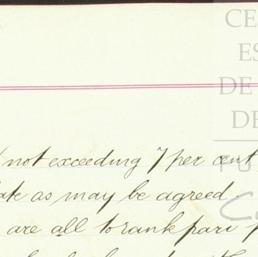 CE
ES
DE
DE
FU
Ca
not exceeding 7 per cent
as may be agreed
are all to rank pari p